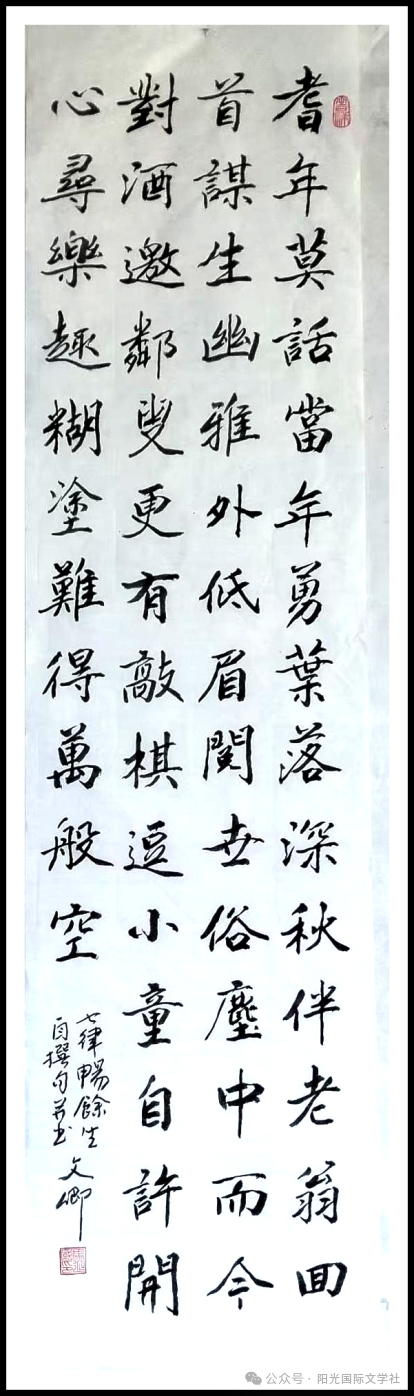 耆年莫話當年勇葉落深秋伴老翁回
首謀生幽雅外低眉閱世俗塵中而今
對酒邀鄰叟更有敲棋逗小童自許開
心尋樂趣糊塗難得萬般空
七律暢餘生
自撰句并书
文卿
公众号 · 阳光国际文学社